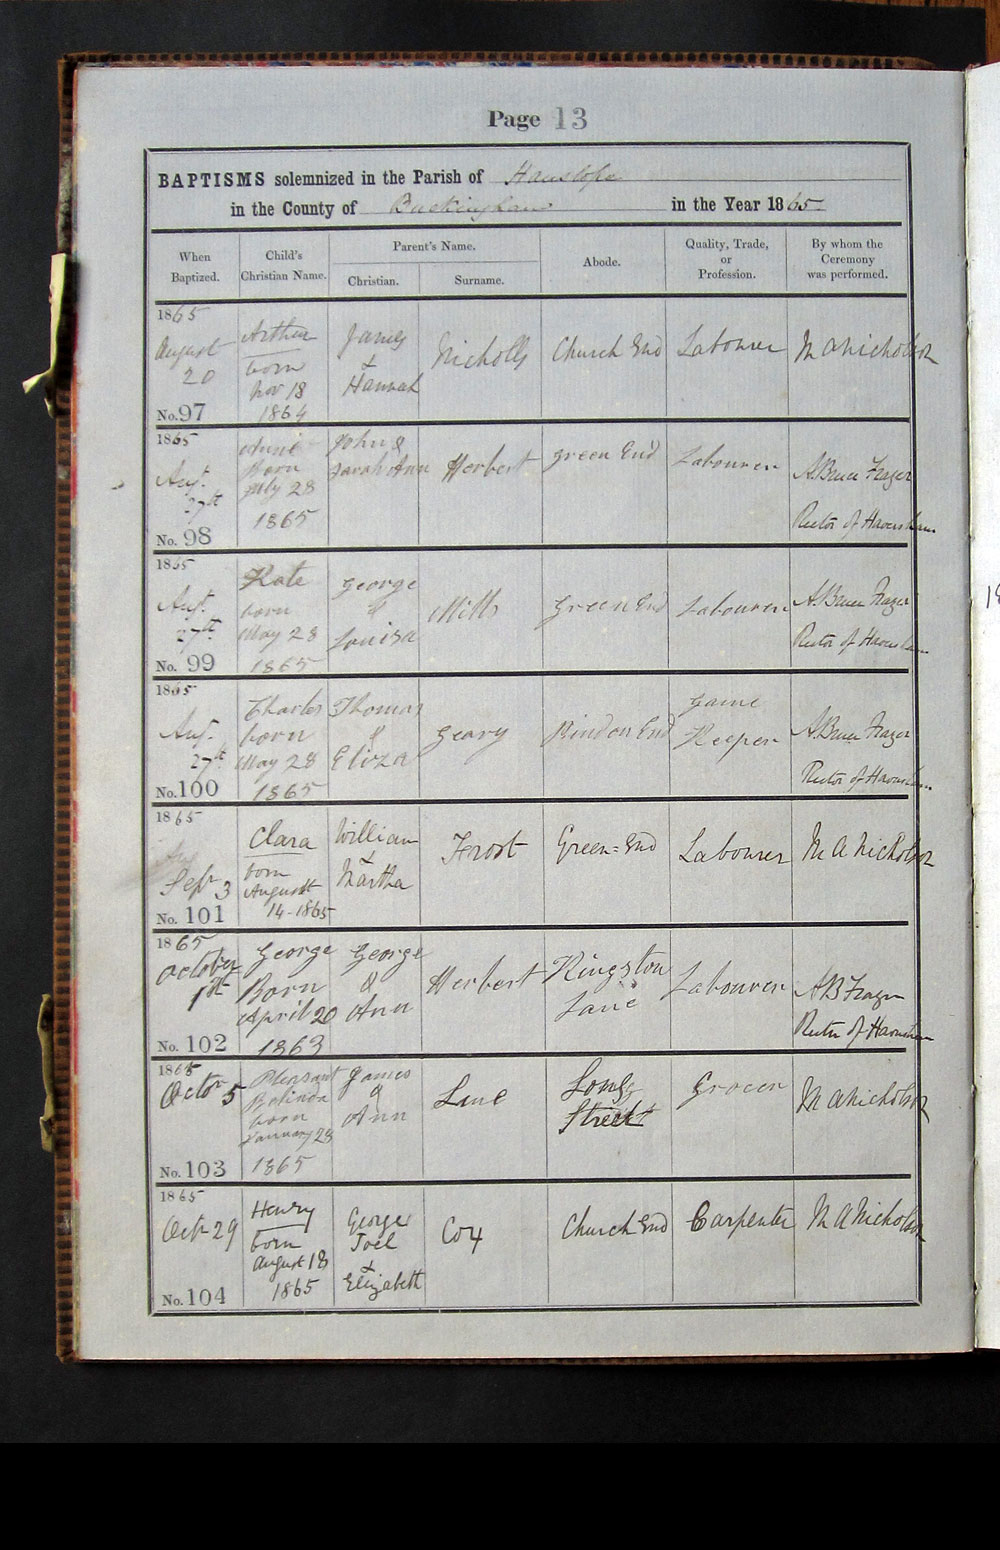 Page 13
BAPTISMS solemnized in the Parish of Hanslope
in the County of Buckingham in the Year 1865
When Baptized.
Child's Christian Name.
Parent's Name.
Christian.
Surname.
Abode.
Quality, Trade, or Profession.
By whom the Ceremony was performed.
1865
August
20
No. 97
Arthur
born
Nov 18
1864
James
&
Hannah
Nicholls
Church End
Labourer
M A Nicholson
1865
Aug.
27th
No. 98
Annie
Born
July 28
1865
John &
Sarah Ann
Herbert
Green End
Labourer
A. Bruce Frazer
Rector of Haversham
1865
Aug.
27th
No. 99
Kate
born
May 28
1865
George
&
Louisa
Mills
Green End
Labourer
A. Bruce Frazer
Rector of Haversham
1865
Aug.
27th
No. 100
Charles
born
May 28
1865
Thomas
&
Eliza
Geary
End
Game
Keeper
A. Bruce Frazer
Rector of Haversham
1865
Sepr 3
No. 101
Clara
born
August
14-1865
William
&
Martha
Frost
Green=End
Labourer
M A Nicholson
1865
October
1st
No. 102
George
Born
April 20
1863
George
&
Ann
Herbert
Kingston
Lane
Labourer
A B Frazer
Rector of Haversham
1865
Octor 5
No. 103
Pleasant
Belinda
born
January 28
1865
James
&
Ann
Line
Long
Street
Grocer
M A Nicholson
1865
Octr 29
No. 104
Henry
born
August 18
1865
George
Joel
&
Elizabeth
Cox
Church End
Carpenter
M A Nicholson